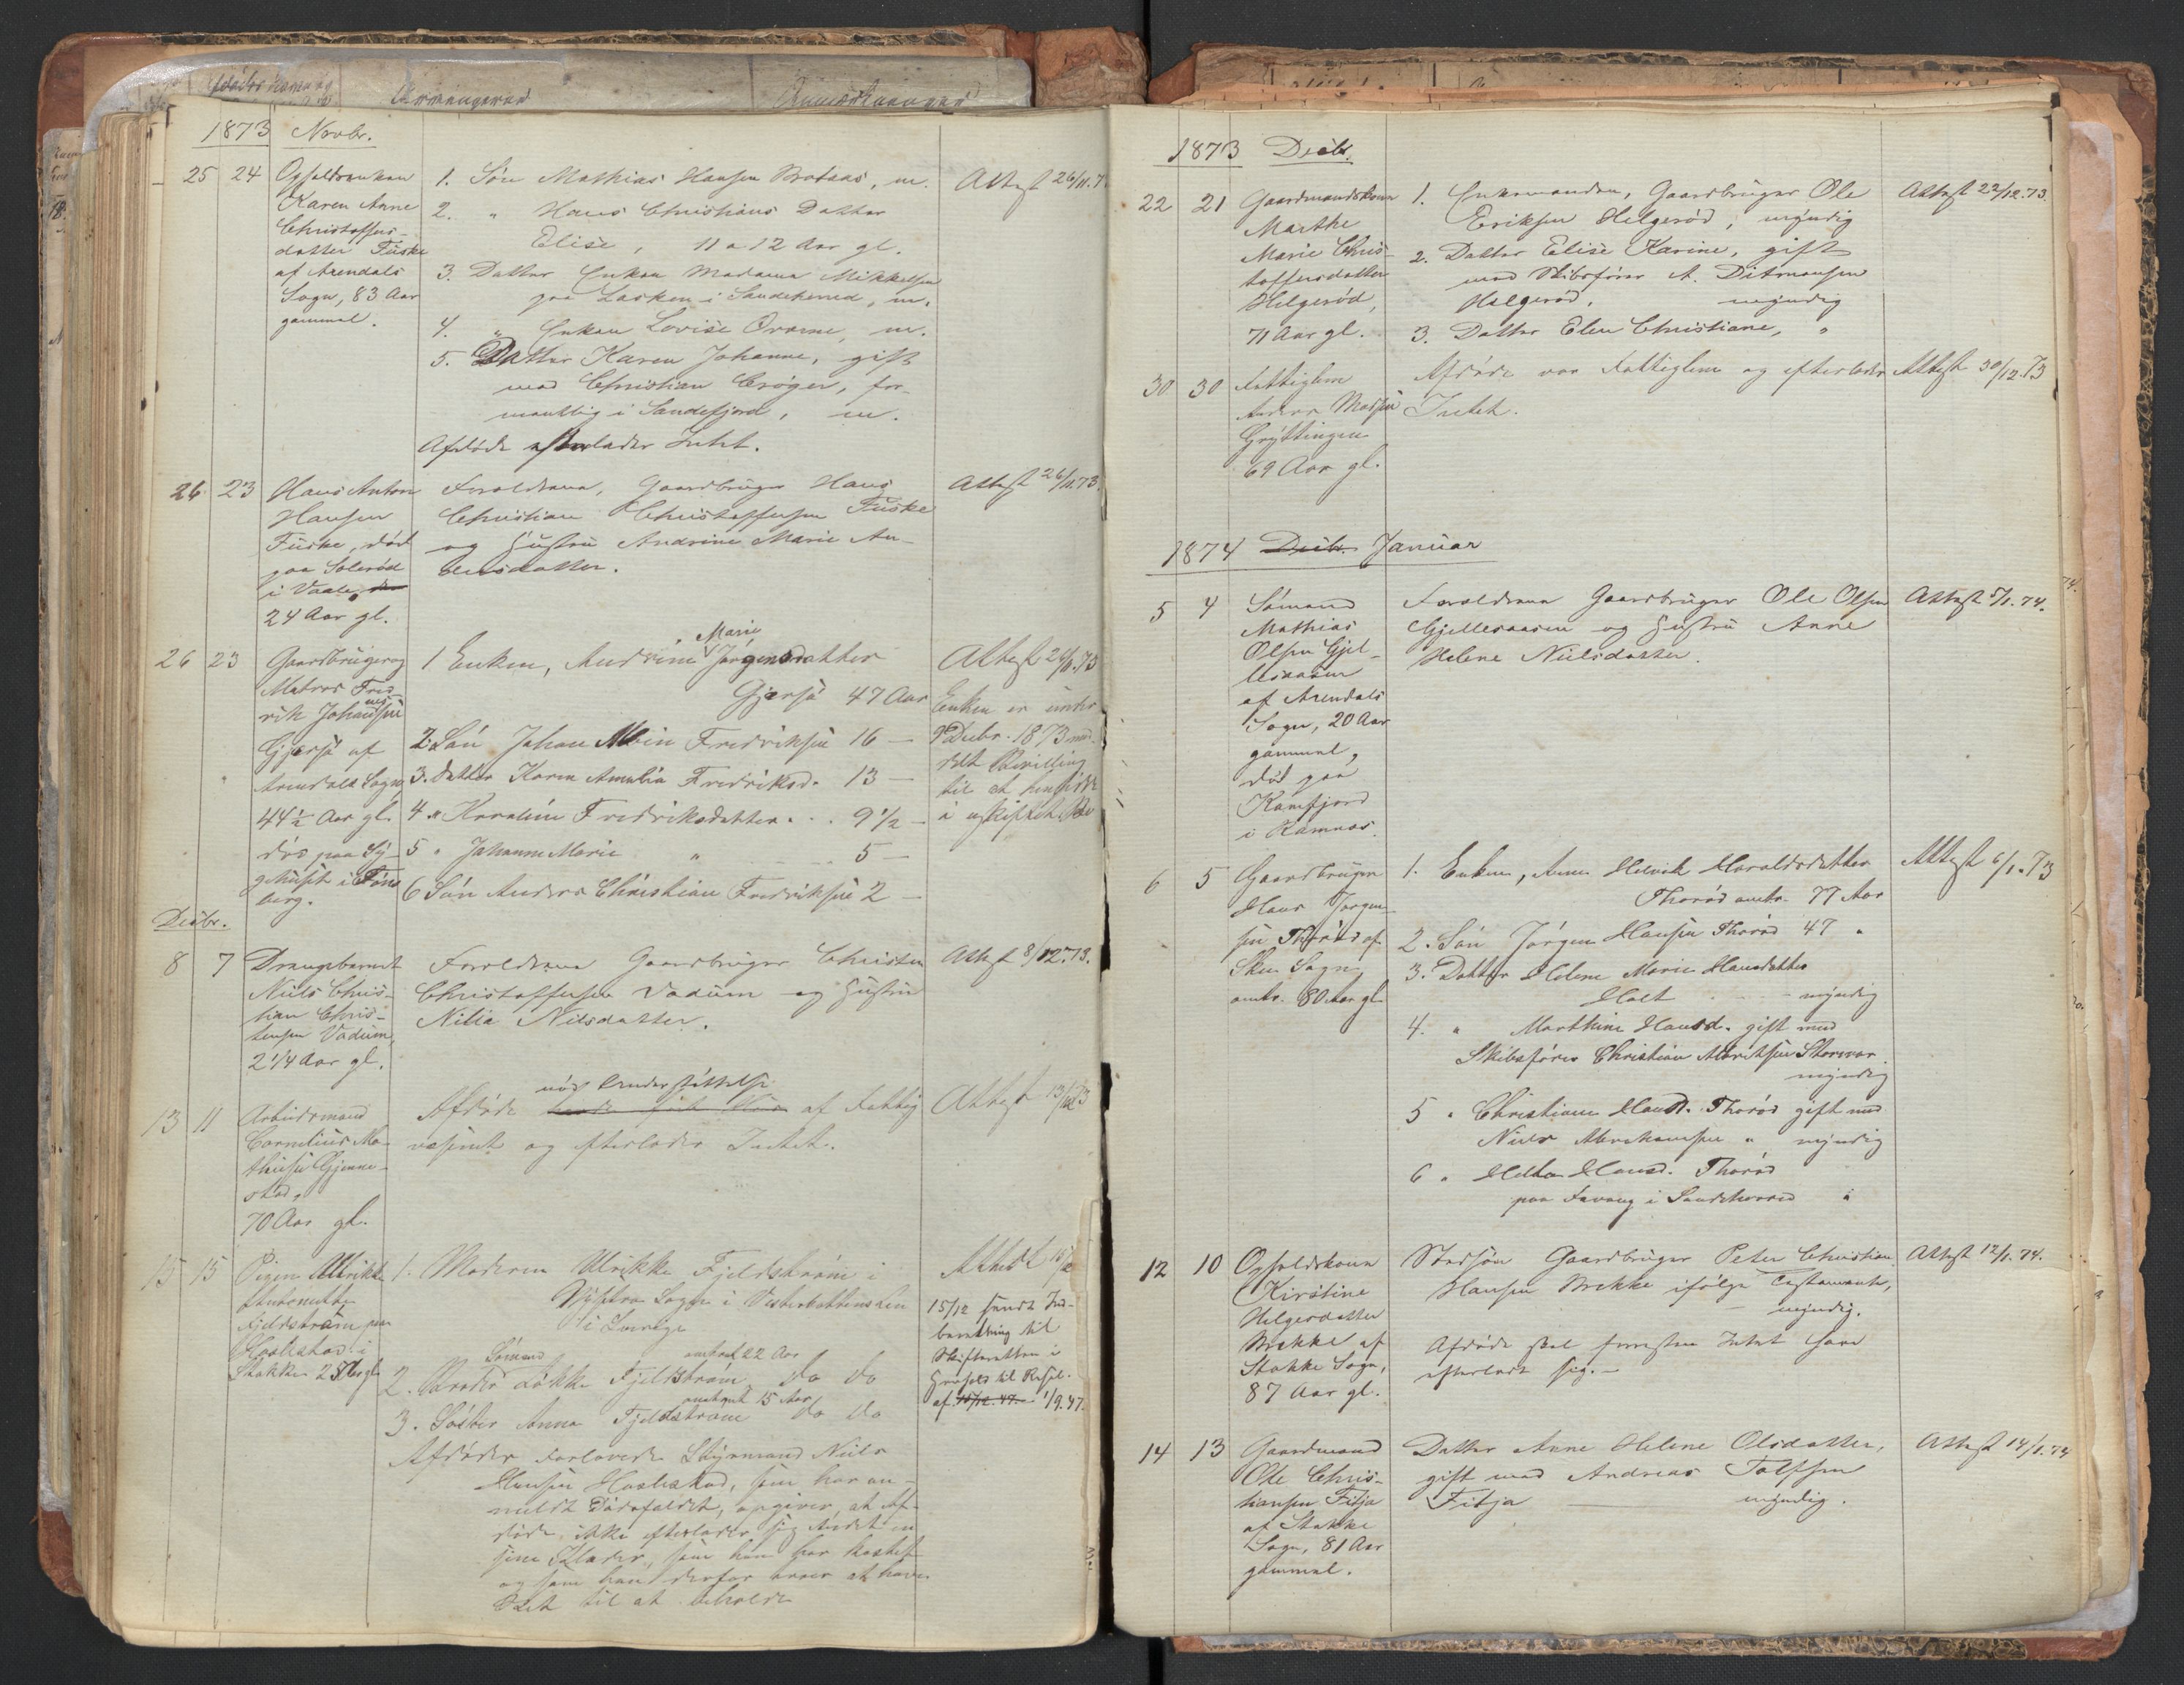 1873 Novbr.
25 24 Opholdsenken
Karen Anne
Christoffers-
datter Fuske
af Arendals
Sogn, 83 Aar
gammel.
1. Søn Mathias Hansen Brataas, m.
2. " Hans Christians Datter
Elise, 11 a 12 Aar gl.
3. Datter Enken Madame Mikkelsen
paa Lasken i Sandehered, m.
4. " Enken Lovise, m.
5. Datter Karen Johanne, gift
med Christian Crøger, for-
mentlig i Sandefjord, m.
Afdøde efterlader Intet.
Attest 26/11.7
26 23 Hans Anton
Hansen
Fuske, død
paa Solerød
i Vaale,
24 Aar gl.
Forældrene, Gaardbruger Hans
Christian Christoffersen Fuske
og Hustru Andrine Marie An-
dersdatter.
Attest 26/11.73.
26 23 Gaardbruger og
Matros Fred-
rik Johannesen
Gjersø af
Arendals Sogn,
44 1/2 Aar gl.
død paa Sy-
gehuset i Tøns-
berg.
1. Enken, Andrine Marie Jørgensdatter
Gjersø 47 Aar
2. Søn Johan Albin Fredriksen 16 —
3. Datter Karen Amalia Fredriksd. 13 —
4 " Karoline Fredriksdatter . . 9 1/2 —
5 " Johanne Marie " 5 —
6 Søn Anders Christian Fredriksen 2 —
Attest 26/11.73
Enken er under
9 Decbr. 1873 med-
delt Bevilling
til at hensidde
i uskiftet Bo
Decbr.
8 7 Drengebarnet
Niels Chris-
tian Chris-
tensen Vadum,
2 1/4 Aar gl.
Forældrene Gaardbruger Christen
Christoffersen Vadum og Hustru
Nilia Nilsdatter.
Attest 8/12.73.
13 11 Arbeidsmand
Cornelius Ma-
thisen Gjenne-
stad,
70 Aar gl.
Afdøde nød Understøttelse af Fattig
væsenet og efterlader Intet.
Attest 13/12.73
15 15 Pigen Ulrikke
Fjeldstrøm paa
Haslestad i
Stokke 25 Aar gl
1. Moderen Ulrikke Fjeldstrøm i
Nysetra Sogn i Vesterbottens Len
i Sverige
2. Broder Sømand Løkke Fjeldstrøm omtrent 22 Aar do do
3. Søster Anna Fjeldstrøm omtrent 15 Aar do do
Afdødes Forlovede Styrmand Niels
Hansen Haslestad, som har an-
meldt Dødsfaldet, opgiver, at Af-
døde ikke efterlader sig Andet en
sine Klæder, som han har kostet
og som han derfor troer at have
Ret til at beholde
Attest 15/12
15/12 sendt Ind-
beretning til
Skifteretten i
Grevskab til Resol.
af 15/12.47. 1/9.47.
1873 Decbr.
22 21 Gaardmandskone
Marthe
Marie Chris-
toffersdatter
Helgerød,
71 Aar gl.
1. Enkemanden, Gaardbruger Ole
Eriksen Helgerød, myndig
2. Datter Elise Karine, gift
med Skibsfører A. Ditmansen
Helgerød, myndig
3. Datter Elen Christiane, "
Attest 22/12.73.
30 30 Fattiglem
Anders Madsen
Gryttingen
69 Aar gl.
Afdøde var Fattiglem og efterlader
Intet.
Attest 30/12.73
1874 Decbr. Januar
5 4 Sømand
Mathias
Olsen Gjel-
lesaasen
af Arendals
Sogn, 20 Aar
gammel,
død paa
Kamfjord
i Ramnæs.
Forældrene Gaardbruger Ole Olsen
Gjellesaasen og Hustru Anne
Helene Nielsdatter.
Attest 5/1.74.
6 5 Gaardbruger
Hans Jørgen-
sen Thorød af
Skee Sogn
omtr. 80 Aar gl
1. Enken, Anne Helvik Haraldsdatter
Thorød omtr. 77 Aar
2. Søn Jørgen Hansen Thorød 47 "
3. Datter Helene Marie Hansdatter
Holt myndig
4. " Marthine Hansd. gift med
Skibsfører Christian Albritsen Storevar
myndig
5 " Christiane Hansd. Thorød gift med
Niels Abrahamsen " myndig
6 " Helene Hansd. Thorød
paa Favang i Sandeherred "
Attest 6/1.73
12 10 Opholdskone
Kirstine
Helgesdatter
Brekke af
Stokke Sogn,
87 Aar gl.
Stedsøn Gaardbruger Peter Christian
Hansen Brekke ifølge Testamente,
— myndig.
Afdøde skal forresten Intet have
efterladt sig. —
Attest 12/1.74.
14 13 Gaardmand
Ole Chris-
tiansen Fitja
af Stokke
Sogn, 81 Aar
gammel.
Datter Anne Helene Olsdatter,
gift med Andreas Tolfsen
Fitja — myndig.
Attest 14/1.74